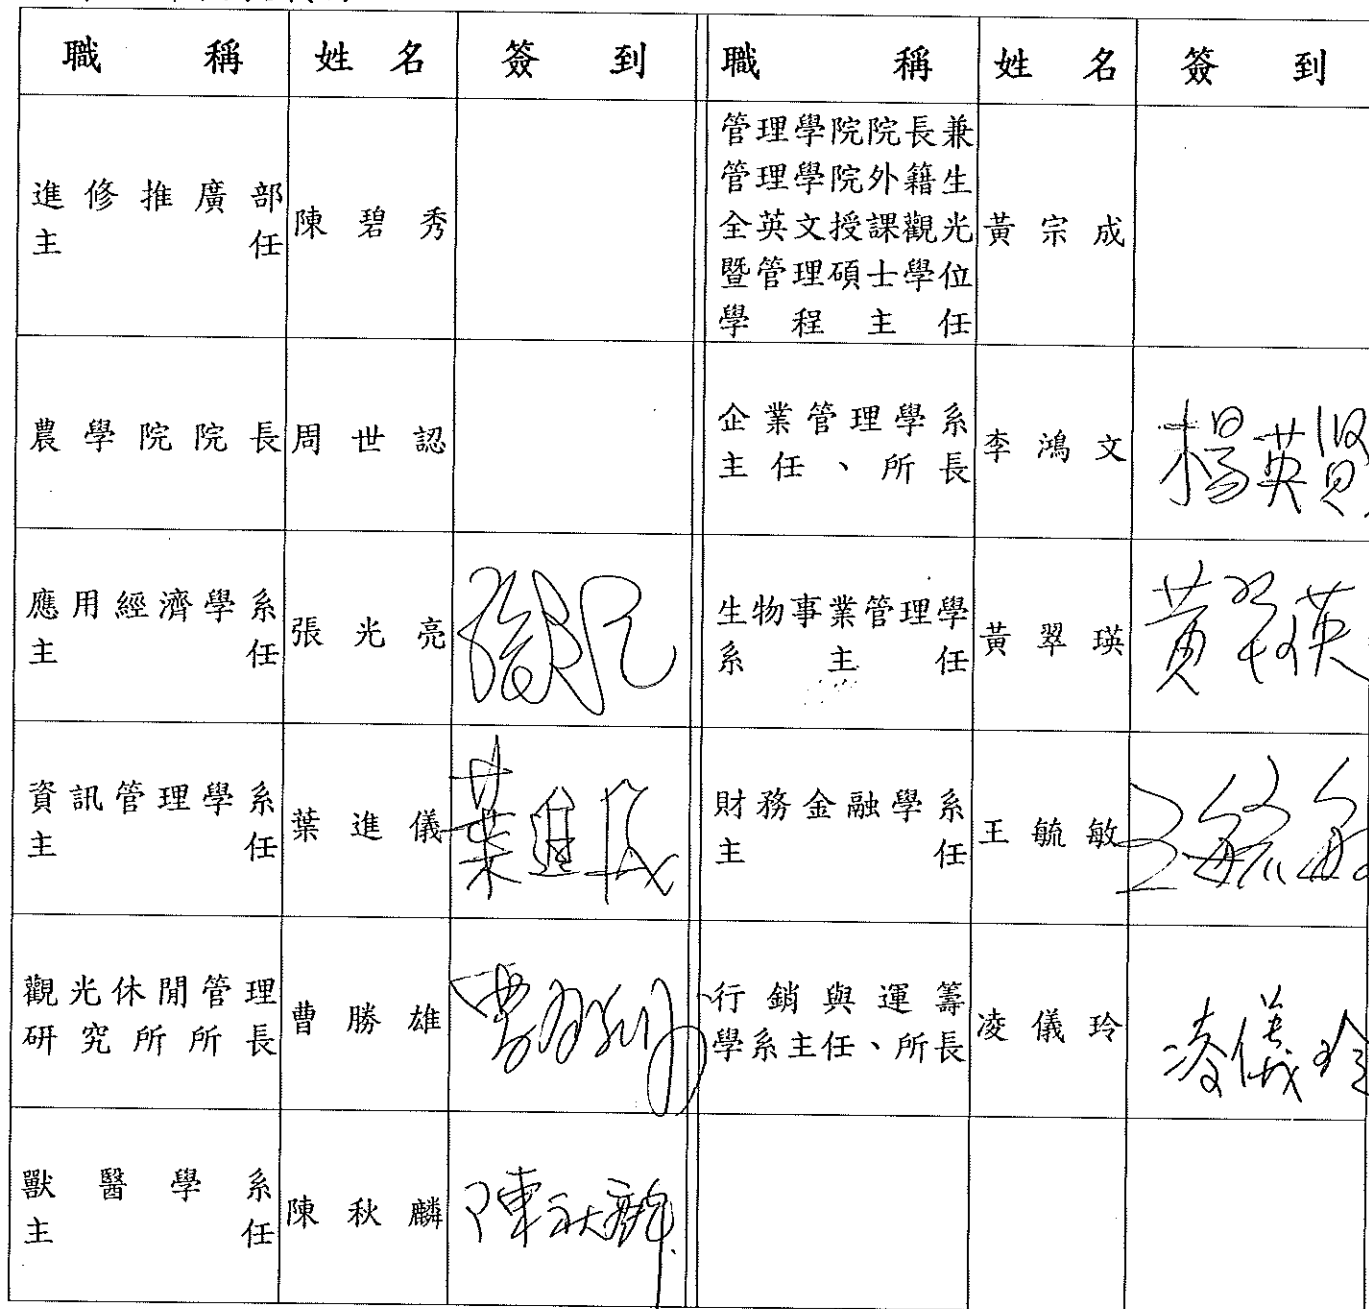 職稱 姓名 簽到 職稱 姓名 簽到
進修推廣部
主任
陳碧秀
管理學院院長兼
管理學院外籍生
全英文授課觀光
暨管理碩士學位
學程主任
黃宗成
農學院院長
周世認
企業管理學系
主任、所長
李鴻文
楊英賢
應用經濟學系
主任
張光亮
生物事業管理學
系主任
黃翠瑛
黃翠瑛
資訊管理學系
主任
葉進儀
葉進儀
財務金融學系
主任
王毓敏
王毓敏
觀光休閒管理
研究所所長
曹勝雄
行銷與運籌
學系主任、所長
凌儀玲
凌儀玲
獸醫學系
主任
陳秋麟
陳秋麟